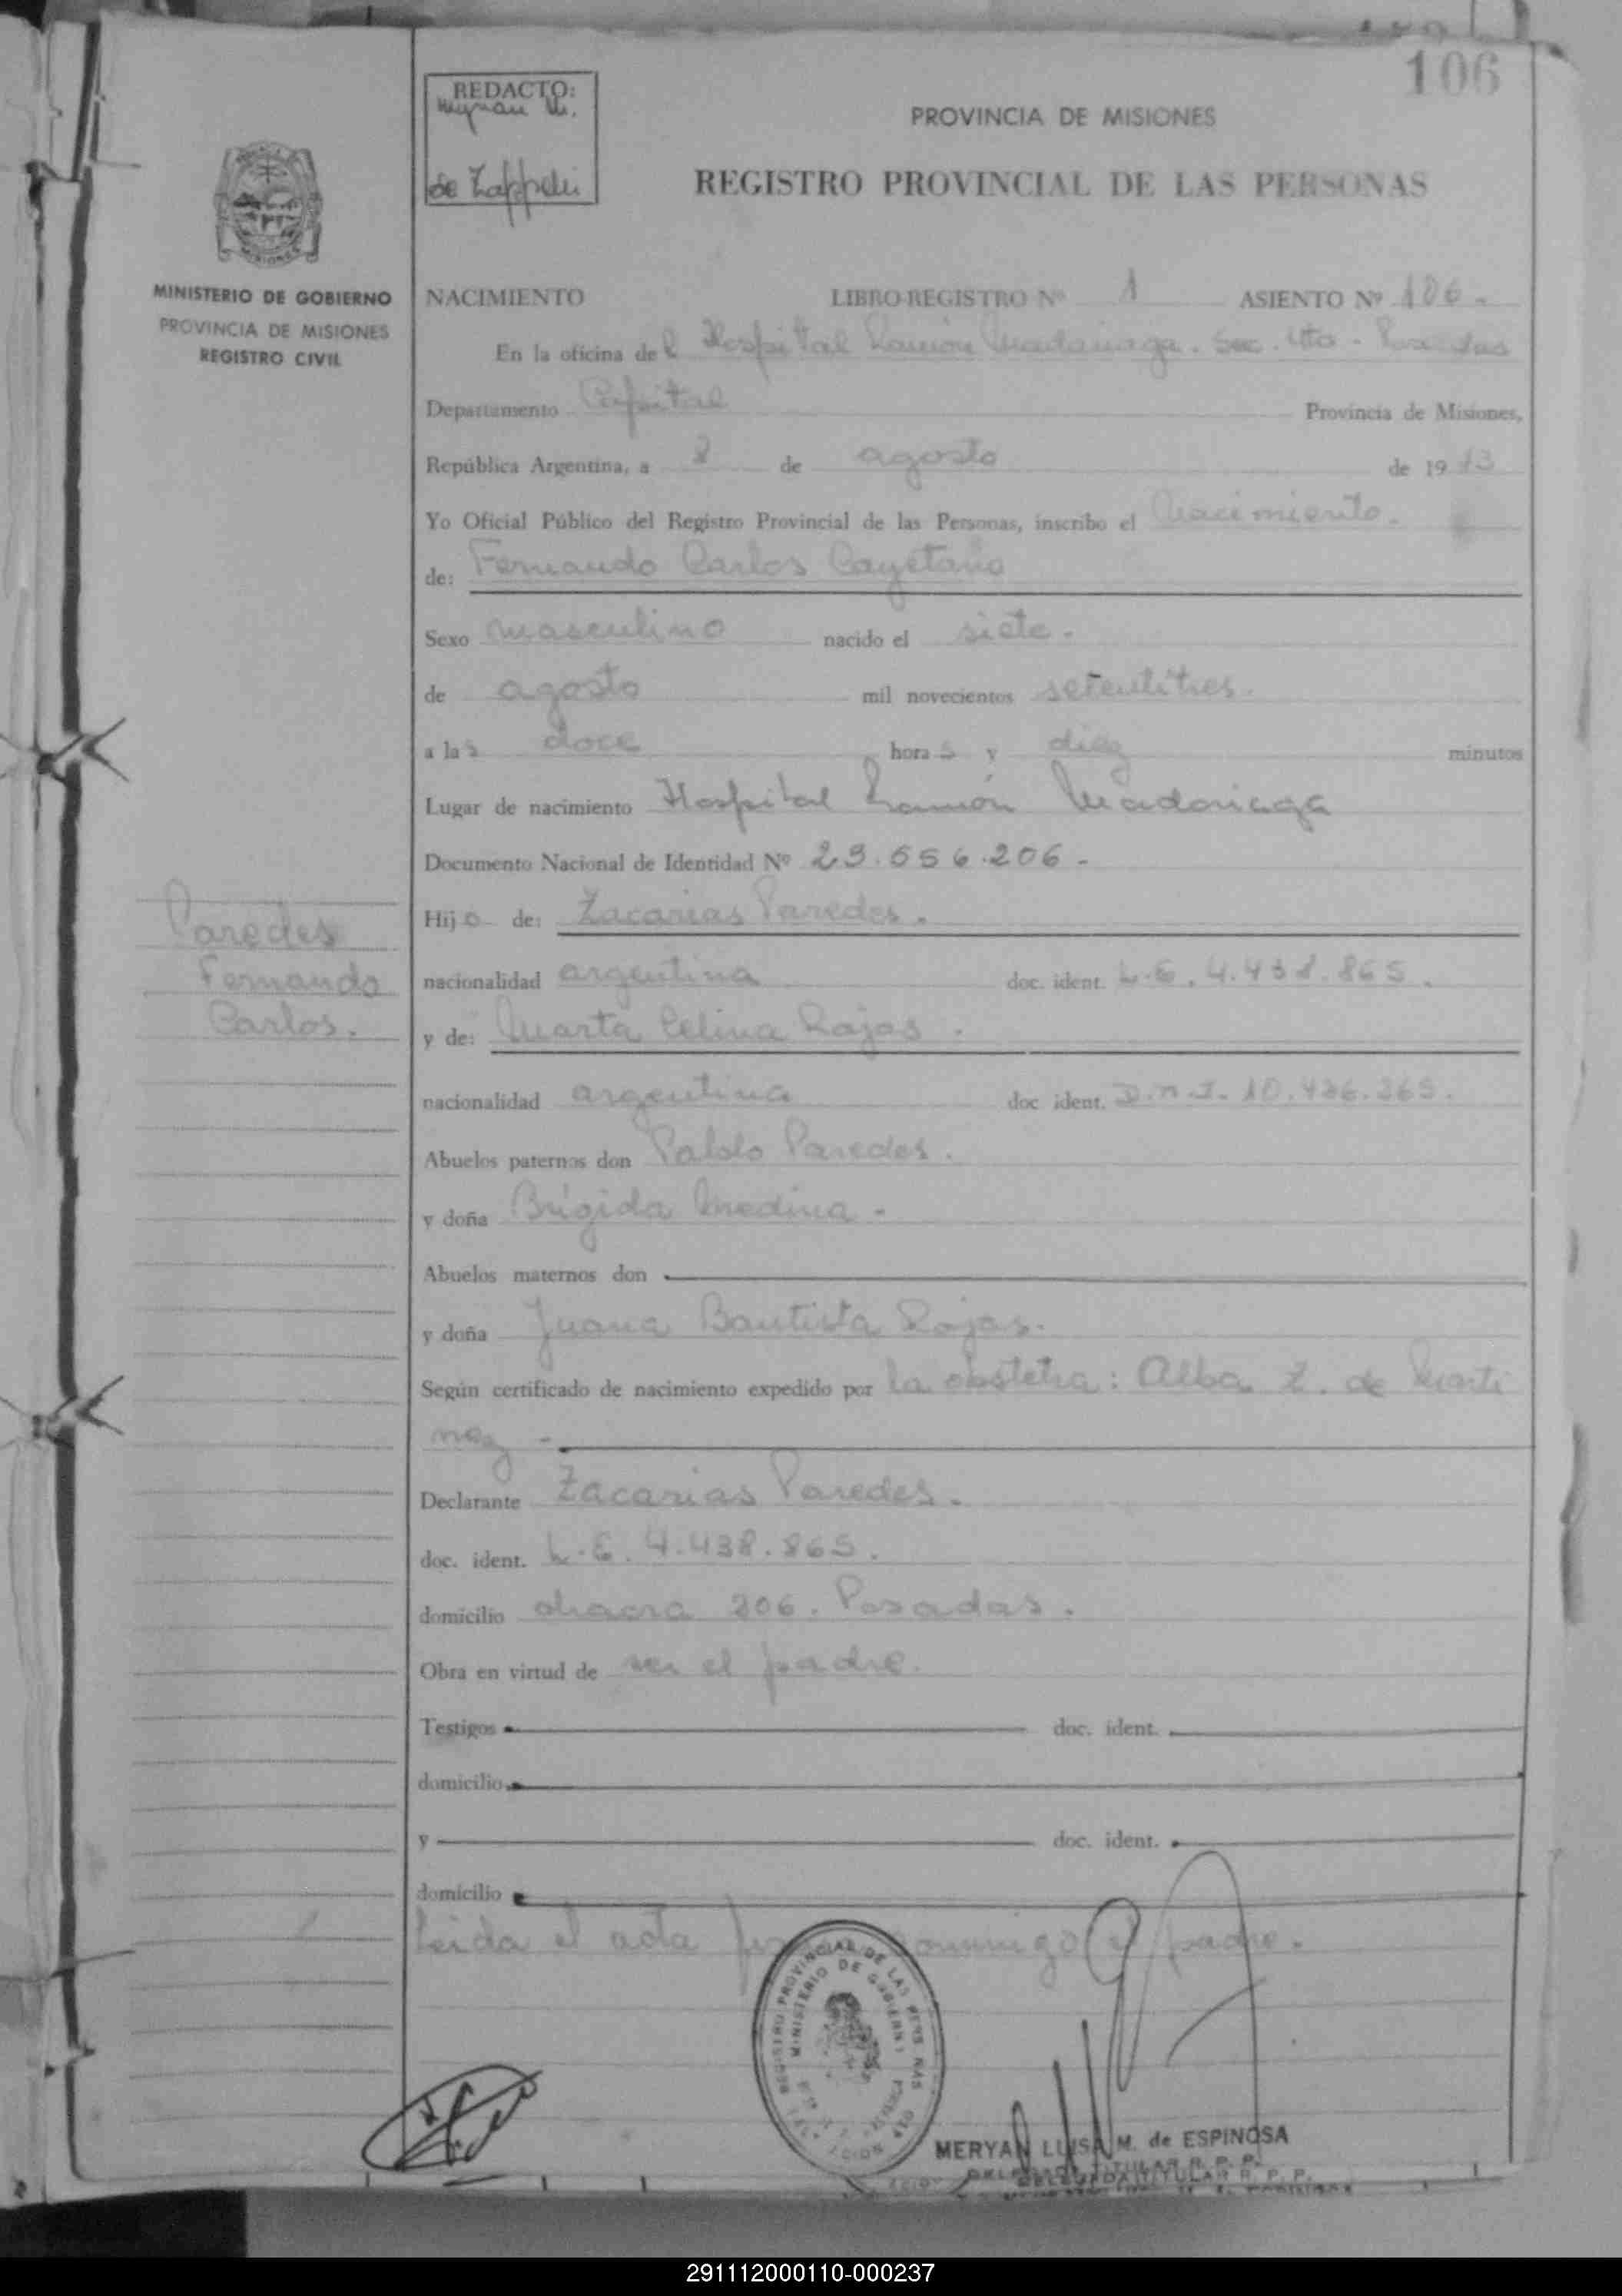 106
REDACTO:
de Zappelli
PROVINCIA DE MISIONES
REGISTRO PROVINCIAL DE LAS PERSONAS
MINISTERIO DE GOBIERNO
PROVINCIA DE MISIONES
REGISTRO CIVIL
NACIMIENTO LIBRO-REGISTRO Nº 1 ASIENTO Nº 106.
En la oficina del Hospital Ramón Madariaga. Sec. 4ta. Posadas
Departamento Capital Provincia de Misiones,
República Argentina, a 8 de agosto de 1973
Yo Oficial Público del Registro Provincial de las Personas, inscribo el Nacimiento.
de: Fernando Carlos Cayetano
Sexo masculino nacido el siete.
de agosto mil novecientos setentitres.
a las doce horas y diez minutos
Lugar de nacimiento Hospital Ramón Madariaga
Documento Nacional de Identidad Nº 23.656.206.
Paredes
Fernando
Carlos.
Hijo de: Zacarias Paredes.
nacionalidad argentina doc. ident. L.E. 4.438.865.
y de: Marta Celina Rojas.
nacionalidad argentina doc ident. D.N.I. 10.436.365.
Abuelos paternos don Pablo Paredes.
y doña Brígida Medina.
Abuelos maternos don
y doña Juana Bautista Rojas.
Según certificado de nacimiento expedido por la obstetra: Alba Z. de Marti
nez
Declarante Zacarias Paredes.
doc. ident. L.E. 4.438.865.
domicilio chacra 206. Posadas.
Obra en virtud de ser el padre.
Testigos doc. ident.
domicilio
y doc. ident.
domicilio
Leida el acta conmigo el padre.
REGISTRO PROVINCIAL DE LAS PERSONAS
MINISTERIO DE GOBIERNO
MERYAN LUISA M. de ESPINOSA
DELEGADA TITULAR R. P. P.
291112000110-000237